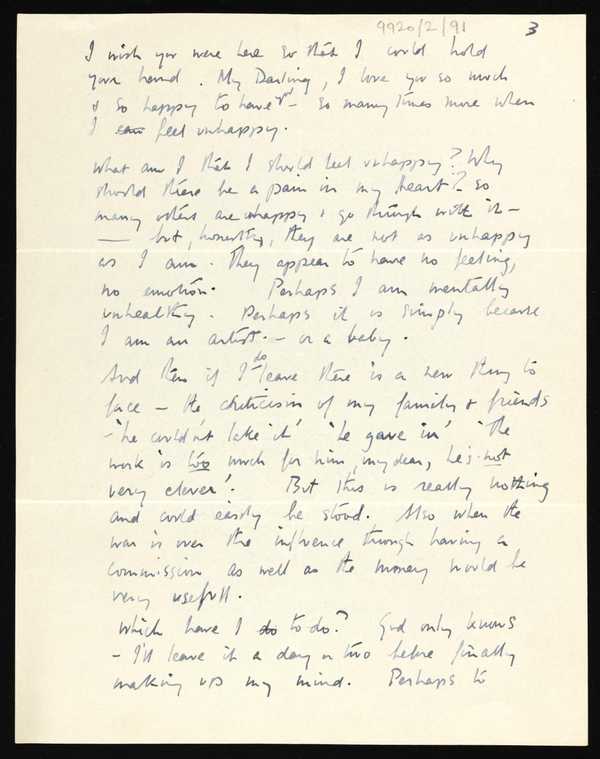 9920/2/91
3
I wish you were here so that I could hold
your hand. My Darling, I love you so much
& so happy to have you - so many times more when
I feel unhappy.
What am I that I should feel unhappy? Why
should there be a pain in my heart? So
many others are unhappy & go through with it -
— but, honestly, they are not as unhappy
as I am. They appear to have no feeling,
no emotion. Perhaps I am mentally
unhealthy. Perhaps it is simply because
I am an artist. - or a baby.
And then if I do leave there is a new thing to
face - the criticism of my family & friends
- 'he couldn't take it' 'he gave in' 'The
work is too much for him, my dear, he's not
very clever'. But this is really nothing
and could easily be stood. Also when the
war is over the influence through having a
commission as well as the money would be
very usefull.
Which have I do to do? God only knows
- I'll leave it a day or two before finally
making up my mind. Perhaps to